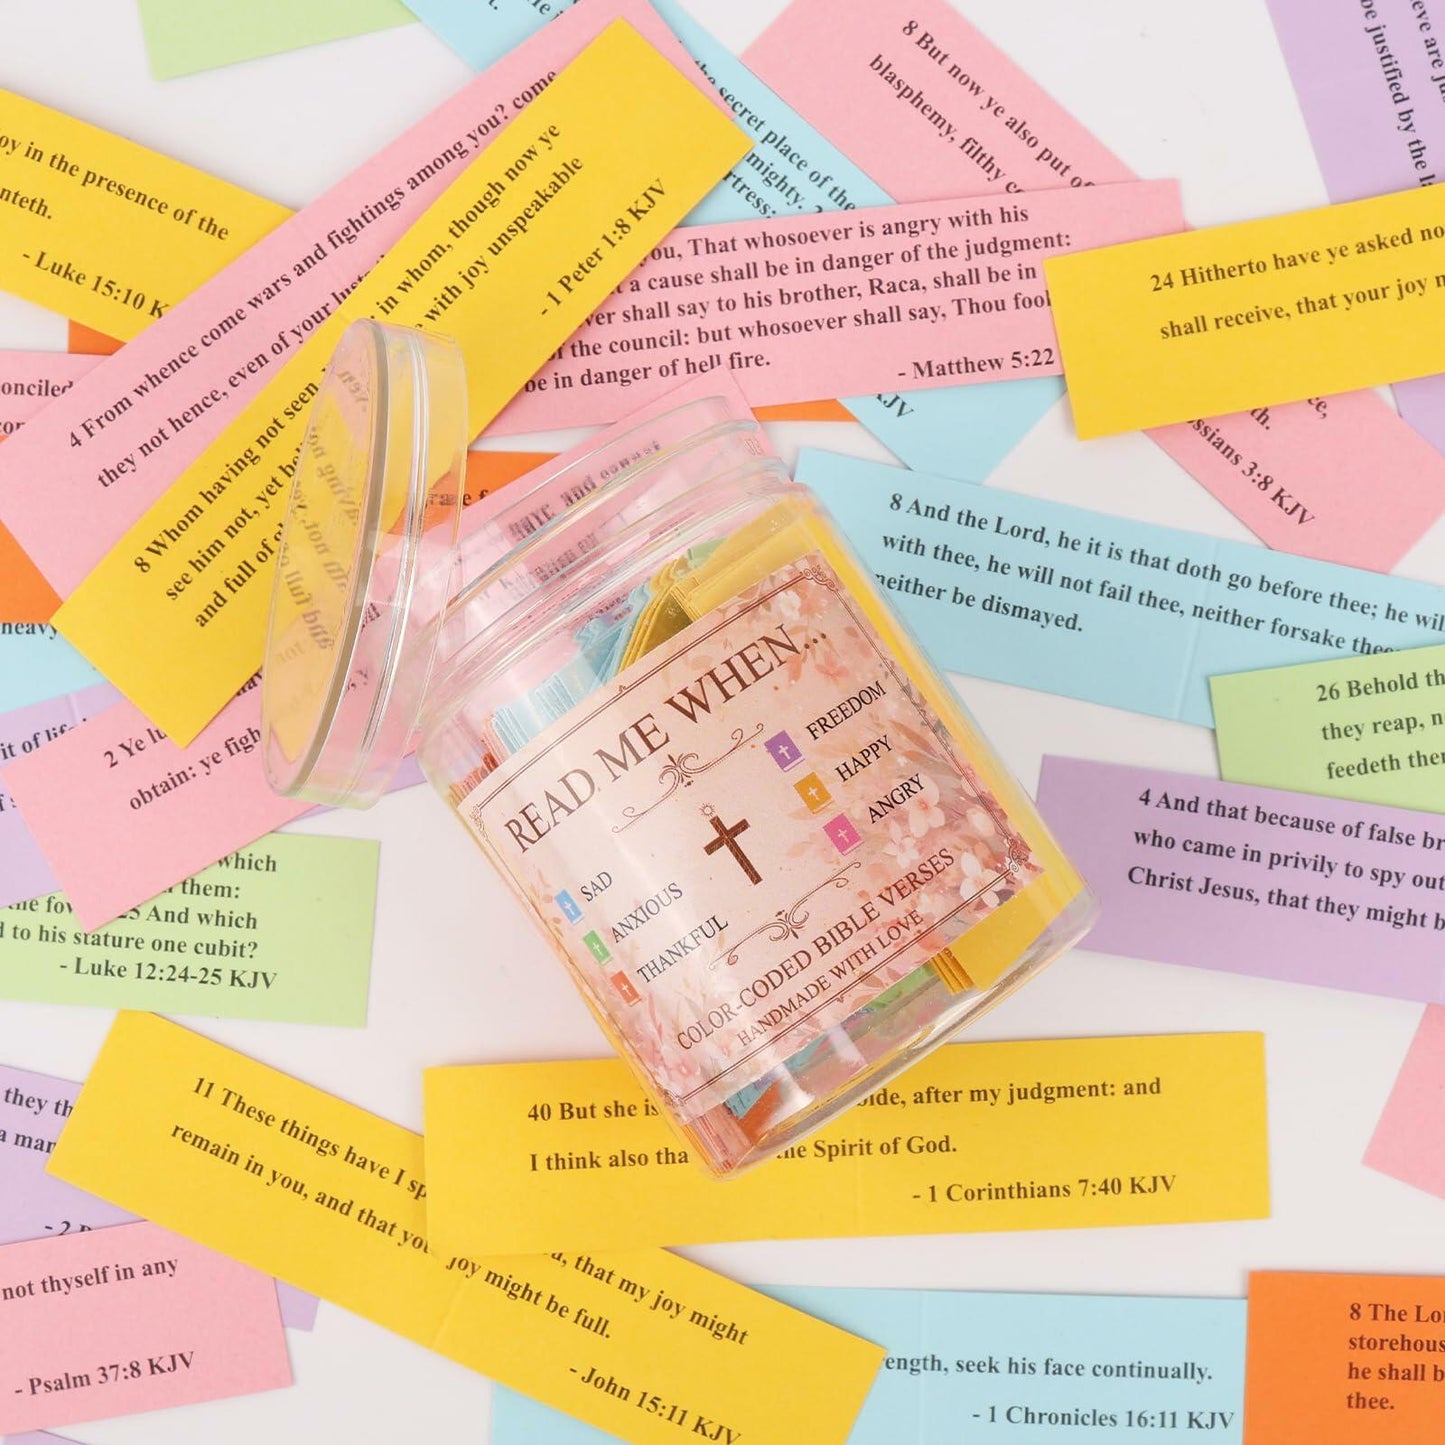 oy in the presence of the
nteth.
- Luke 15:10 K
4 From whence come wars and fightings among you? come
they not hence, even of your
8 Whom having not seen
in whom, though now ye
see him not, yet
with joy unspeakable
and full of
- 1 Peter 1:8 KJV
secret place of the
mighty.
rtress:
8 But now ye also put
blasphemy, filthy
ou, That whosoever is angry with his
a cause shall be in danger of the judgment:
ver shall say to his brother, Raca, shall be in
f the council: but whosoever shall say, Thou fool
be in danger of hell fire.
- Matthew 5:22
be justified by the
24 Hitherto have ye asked
shall receive, that your joy
KJV
ossians 3:8 KJV
onciled
8 And the Lord, he it is that doth go before thee; he wil
with thee, he will not fail thee, neither forsake thee
neither be dismayed.
26 Behold th
they reap, n
feedeth ther
4 And that because of false br
who came in privily to spy out
Christ Jesus, that they might b
heavy
it of life
2 Ye lu
obtain: ye figh
which
them:
25 And which
d to his stature one cubit?
- Luke 12:24-25 KJV
READ ME WHEN...
SAD
ANXIOUS
THANKFUL
FREEDOM
HAPPY
ANGRY
COLOR-CODED BIBLE VERSES
HANDMADE WITH LOVE
they th
a man
- 2
not thyself in any
- Psalm 37:8 KJV
11 These things have I sp
remain in you, and that you
, that my joy might
joy might be full.
- John 15:11 KJV
40 But she is
bide, after my judgment: and
I think also tha
the Spirit of God.
- 1 Corinthians 7:40 KJV
ength, seek his face continually.
- 1 Chronicles 16:11 KJV
8 The Lor
storehous
he shall b
thee.